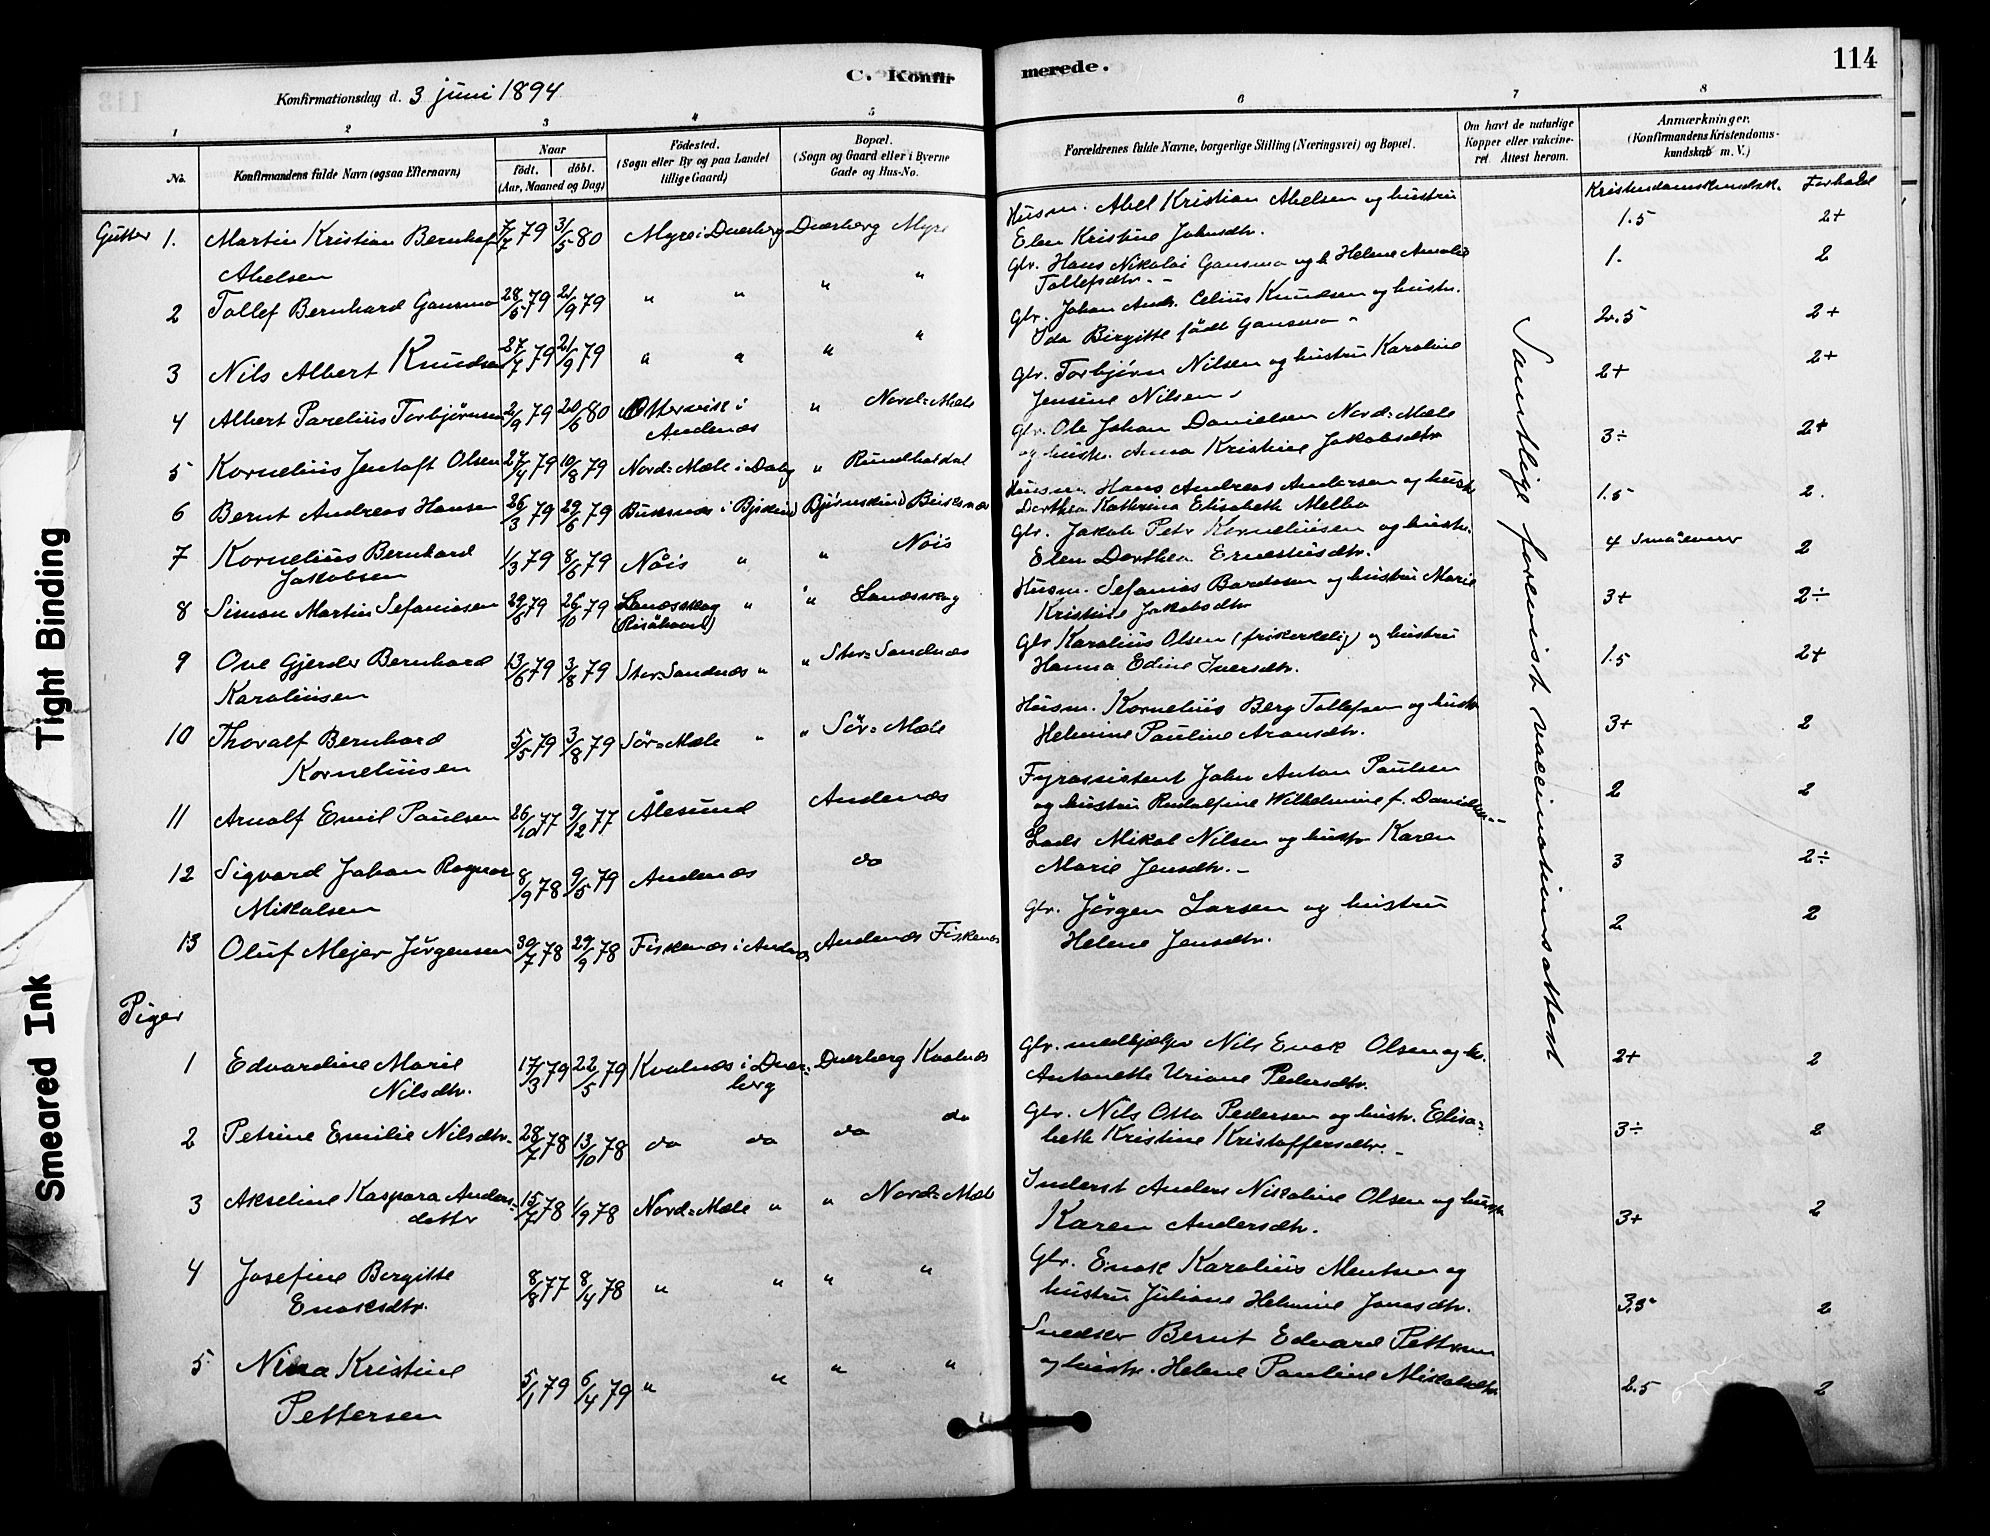 114
C. Konfirmerede.
Konfirmationsdag d. 3 juni 1894
1 2 3 4 5 6 7 8
No.
Konfirmandens fulde Navn (ogsaa Efternavn).
Naar
født. døbt.
(Aar, Maaned og Dag)
Fødested.
(Sogn eller By og paa Landet
tillige Gaard)
Bopæl.
(Sogn og Gaard eller i Byerne
Gade og Hus-No.
Forældrenes fulde Navne, borgerlige Stilling (Næringsvei) og Bopæl.
Om havt de naturlige
Kopper eller vakcine-
ret. Attest herom.
Anmærkninger.
(Konfirmandens Kristendoms-
kundskab m. V.)
Kristendomskundsk. Forhold
Samtlige forevist vaccinationsattest
Gutter 1. Martin Kristian Bernhof 7/7 79 3/5 80 Myre i Dverberg Dverberg Myre Husm. Abel Kristian Abelsen og hustru 1.5 2+
Abelsen Elen Kristine Johnsdtr.
2 Tollef Bernhard Gansmo 28/5 79 21/9 79 " " " " Gbr. Hans Nikolai Gansmo og h Helene Amalie 1. 2
Tollefsdtr. -
3 Nils Albert Knudsen 27/7 79 21/9 79 " " " " Gbr. Johan Andr. Celius Knudsen og hustr. 2.5 2+
Ida Birgitte født Gansmo -
4 Albert Parelius Torbjørnsen 2/9 79 20/6 80 Ottervik i " Nord=Mæle Gbr. Torbjørn Nilsen og hustru Karoline 2+ 2+
Andenæs Jensine Nilsen -
5 Kornelius Jentoft Olsen 27/4 79 10/8 79 Nord=Mæle i Dvbg " Rundholdal Gbr. Ole Johan Danielsen Nord=Mæle 3÷ 2+
og hustr. Anna Kristine Jakobsdtr
6 Bernt Andreas Hansen 26/3 79 29/6 79 Buksnæs i Bjskind Bjørnskind Buksnæs Husm. Hans Andreas Andersen og hustr 1.5 2.
Dorthea Kathrina Elisabeth Melbo
7 Kornelius Bernhard 1/3 79 8/6 79 Nöis " " Nöis Gbr. Jakob Petr Korneliusen og hustr. 4 2
Jakobsen Elen Dorthea Ernestusdtr.
8 Simon Martin Sefaniasen 29/8 79 26/10 79 Lanæsskog " " Lanæsskog Husm. Sefanias Bardosen og hustru Marie 3+ 2÷
(Risöhavn) Kristine Jakobsdtr
9 Ove Gjerder Bernhard 13/6 79 3/8 79 Stor=Sandnæs " " Stor=Sandnæs Gbr Karolius Olsen (frikirkelig) og hustru 1.5 2+
Karoliusen Hanna Edine Iversdtr.
10 Thoralf Bernhard 5/5 79 3/8 79 Sör=Mæle " " Sör=Mæle Husm. Kornelius Berg Tollefsen og hustr 3+ 2
Korneliusen Helmine Pauline Aronsdtr.
11 Arnolf Emil Paulsen 26/10 77 9/12 77 Ålesund Andenæs Fyrassistent John Anton Paulsen 2 2
og hustru Rudolfine Wilhelmine f. Davidsen -
12 Sigvard Johan Ragnar 8/9 78 9/5 79 Andenæs do Lods Mikal Nilsen og hustr Karen 3 2÷
Mikalsen Marie Jensdtr. -
13 Oluf Mejer Jörgensen 30/7 78 29/9 78 Fiskenæs i Andnæs Andenæs Fiskenæs Gbr. Jörgen Larsen og hustru 2 2
Helene Jensdtr.
Piger
1 Edvardine Marie 17/3 79 22/5 79 Kvalnæs i Dver= Dverberg Kvalnæs Gbr. medhjælper Nils Enok Olsen og h. 2+ 2
Nilsdtr. berg Antonette Uriane Pedersdtr.
2 Petrine Emilie Nilsdtr. 28/7 78 13/10 78 do do do do Gbr. Nils Otto Pedersen og hustr. Elisa= 3÷ 2
beth Kristine Kristoffersdtr. -
3 Akseline Kaspara Anders= 15/7 78 1/9 78 Nord=Mæle " " Nord=Mæle Inderst Anders Nikoline Olsen og hustr 3+ 2
datter Karen Andersdtr.
4 Josefine Bergitte 8/8 77 8/4 78 " " " " Gbr. Enok Karolius Mentsen og 3.5 2
Enoksdtr. hustru Juliane Helmine Jonasdtr.
5 Nina Kristine 5/1 79 6/4 79 " " " " Snedker Bernt Edvard Pettersen 2.5 2
Pettersen og hustr. Helene Pauline Mikalsdtr
Tight Binding
Smeared Ink